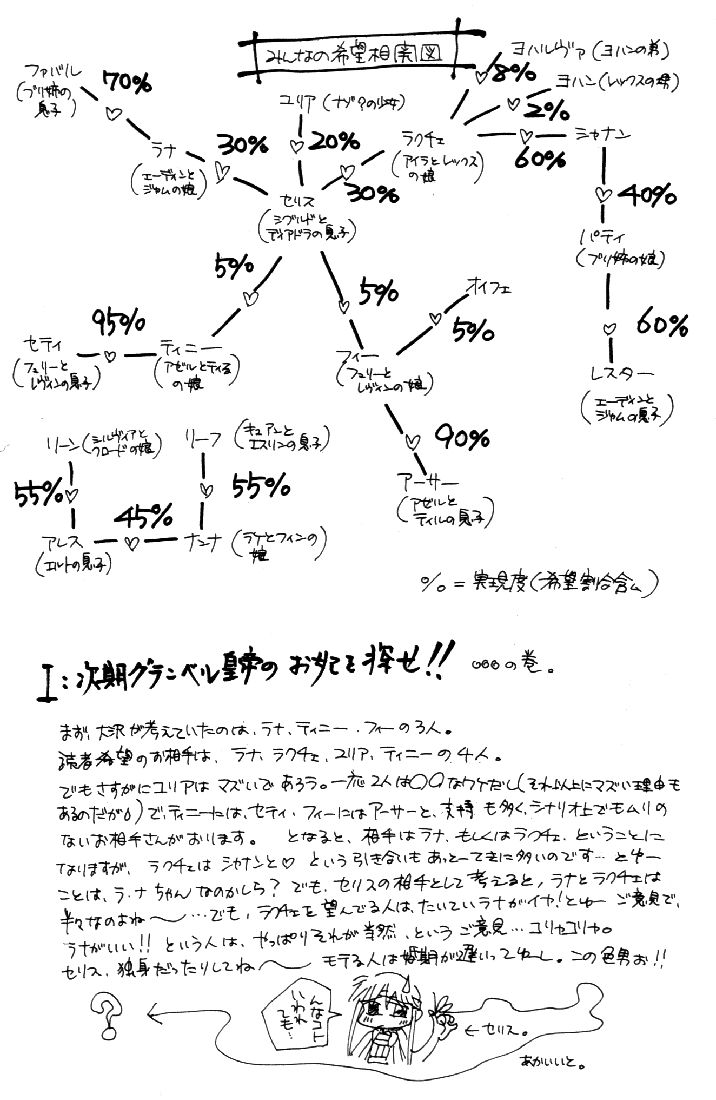 みんなの希望相関図
ファバル
(ブリ姉の
息子)
70%
ラナ
(エーディンと
ジャムの娘)
30%
ユリア (ナゾ?の少女)
20%
ラクチェ
(アイラとレックス
の娘)
30%
ヨハルヴァ (ヨハンの弟)
8%
ヨハン (レックスの甥)
2%
シャナン
60%
40%
パティ
(ブリ姉の娘)
60%
レスター
(エーディンと
ジャムの息子)
セリス
(シグルドと
ディアドラの息子)
5%
5%
オイフェ
5%
セティ
(フュリーと
レヴィンの息子)
95%
ティニー
(アゼルとティルテュ
の娘)
フィー
(フュリーと
レヴィンの娘)
90%
アーサー
(アゼルと
ティルの息子)
リーン (シルヴィアと
クロードの娘)
リーフ (キュアンと
エスリンの息子)
55%
55%
45%
アレス
(エルトの息子)
ナンナ (ラケとフィンの
娘)
%=実現度(希望割合含ム)
I:次期グランベル皇帝の お妃を探せ!! ○○○の巻。
まず、大沢が考えていたのは、ラナ、ティニー・フィーの3人。
読者希望のお相手は、ラナ、ラクチェ、ユリア、ティニーの4人。
でもさすがにユリアはマズいであろう。一応2人は○○なワケだし(それ以上にマズい理由も
あるのだが)で、ティニーには、セティ・フィーにはアーサーと、支持も多く、シナリオ上でもムリの
ないお相手さんがおります。 となると、相手はラナ、もしくはラクチェ、ということに
なりますが、ラクチェはシャナンと♡という引き合いもあっとーてきに多いのです…とゆー
ことは、ラ・ナちゃんなのかしら? でも、セリスの相手として考えると、ラナとラクチェは
半々なのよね〜…でも、ラクチェを望んでる人は、たいていラナがイヤ!とゆーご意見で、
ラナがいい!!という人は、やっぱりそれが当然、というご意見…コリャコリャ。
セリス、独身だったりしてね〜 モテる人は婚期が遅いってゆーし。この色男お!!
?
んなコト
いわれ
ても…
←セリス。
あかいいと。